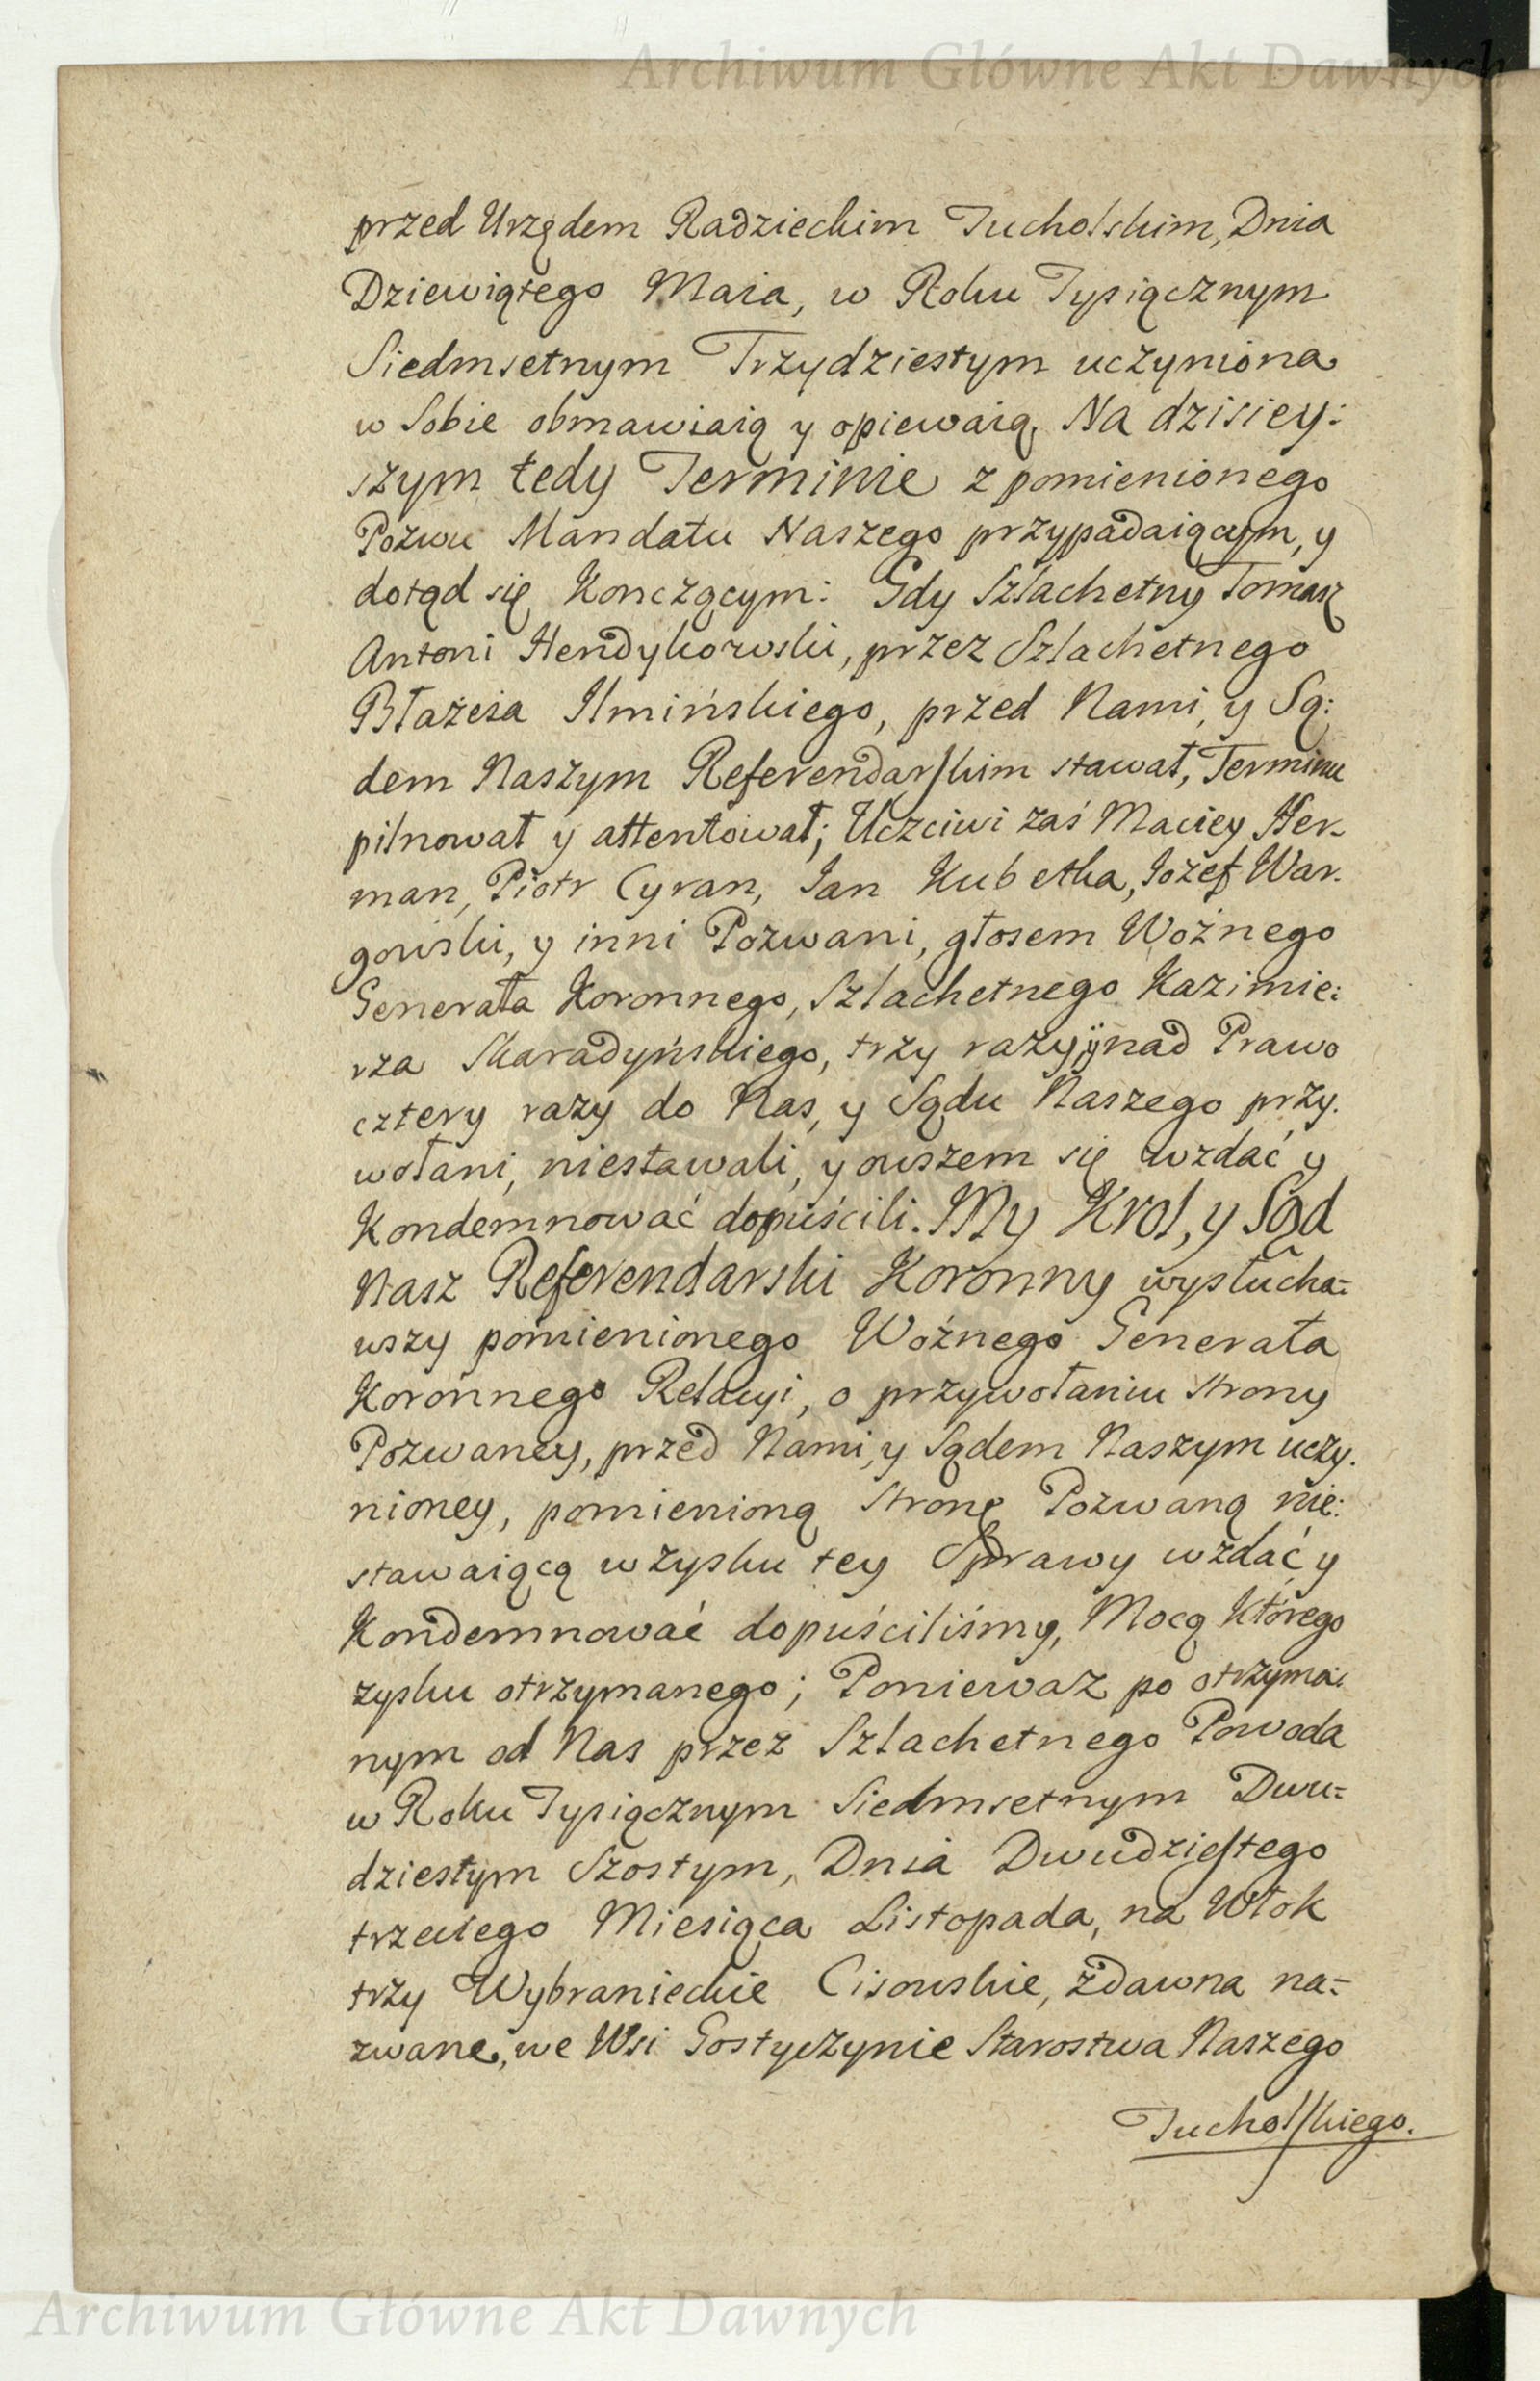 Archiwum Główne Akt Dawnych
przed Urzędem Radzieckim Tucholskim, Dnia
Dziewiątego Maia, w Roku Tysiącznym
Siedmsetnym Trzydziestym uczyniona
w Sobie obmawiaią y opiewaią. Na dzisiey:
szym tedy Terminie z pomienionego
Pozwu Mandatu Naszego przypadaiącym, y
dotąd się Konczącym: Gdy Szlachetny Tomasz
Antoni Hendykowski, przez Szlachetnego
Błażeia Ilmińskiego, przed Nami, y Są:
dem Naszym Referendarskim stawał, Terminu
pilnował y attentował; Uczciwi zaś Maciey Her-
man, Piotr Cyran, Ian Kubetka, Iozef War.
gowski, y inni Pozwani, głosem Woźnego
Generała Koronnego, Szlachetnego Kazimie:
rza Skaradyńskiego, trzy razy, y nad Prawo
cztery razy do Nas, y Sądu Naszego przy.
wołani, niestawali, y owszem się wzdać y
Kondemnować dopuścili. My Krol, y Sąd
Nasz Referendarski Koronny wysłucha=
wszy pomienionego Woźnego Generała
Koronnego Relacyi, o przywołaniu Strony
Pozwaney, przed Nami, y Sądem Naszym uczy.
nioney, pomienioną Stronę Pozwaną nie:
stawaiącą w zysku tey Sprawy wzdać y
Kondemnować dopuściliśmy, Mocą Którego
zysku otrzymanego; Ponieważ po otrzyma:
nym od Nas przez Szlachetnego Powoda
w Roku Tysiącznym Siedmsetnym Dwu=
dziestym Szostym, Dnia Dwudziestego
trzeciego Miesiąca Listopada, na Włok
trzy Wybranieckie Cisowskie, zdawna na=
zwane, we Wsi Gostyczynie Starostwa Naszego
Tucholskiego.
Archiwum Główne Akt Dawnych